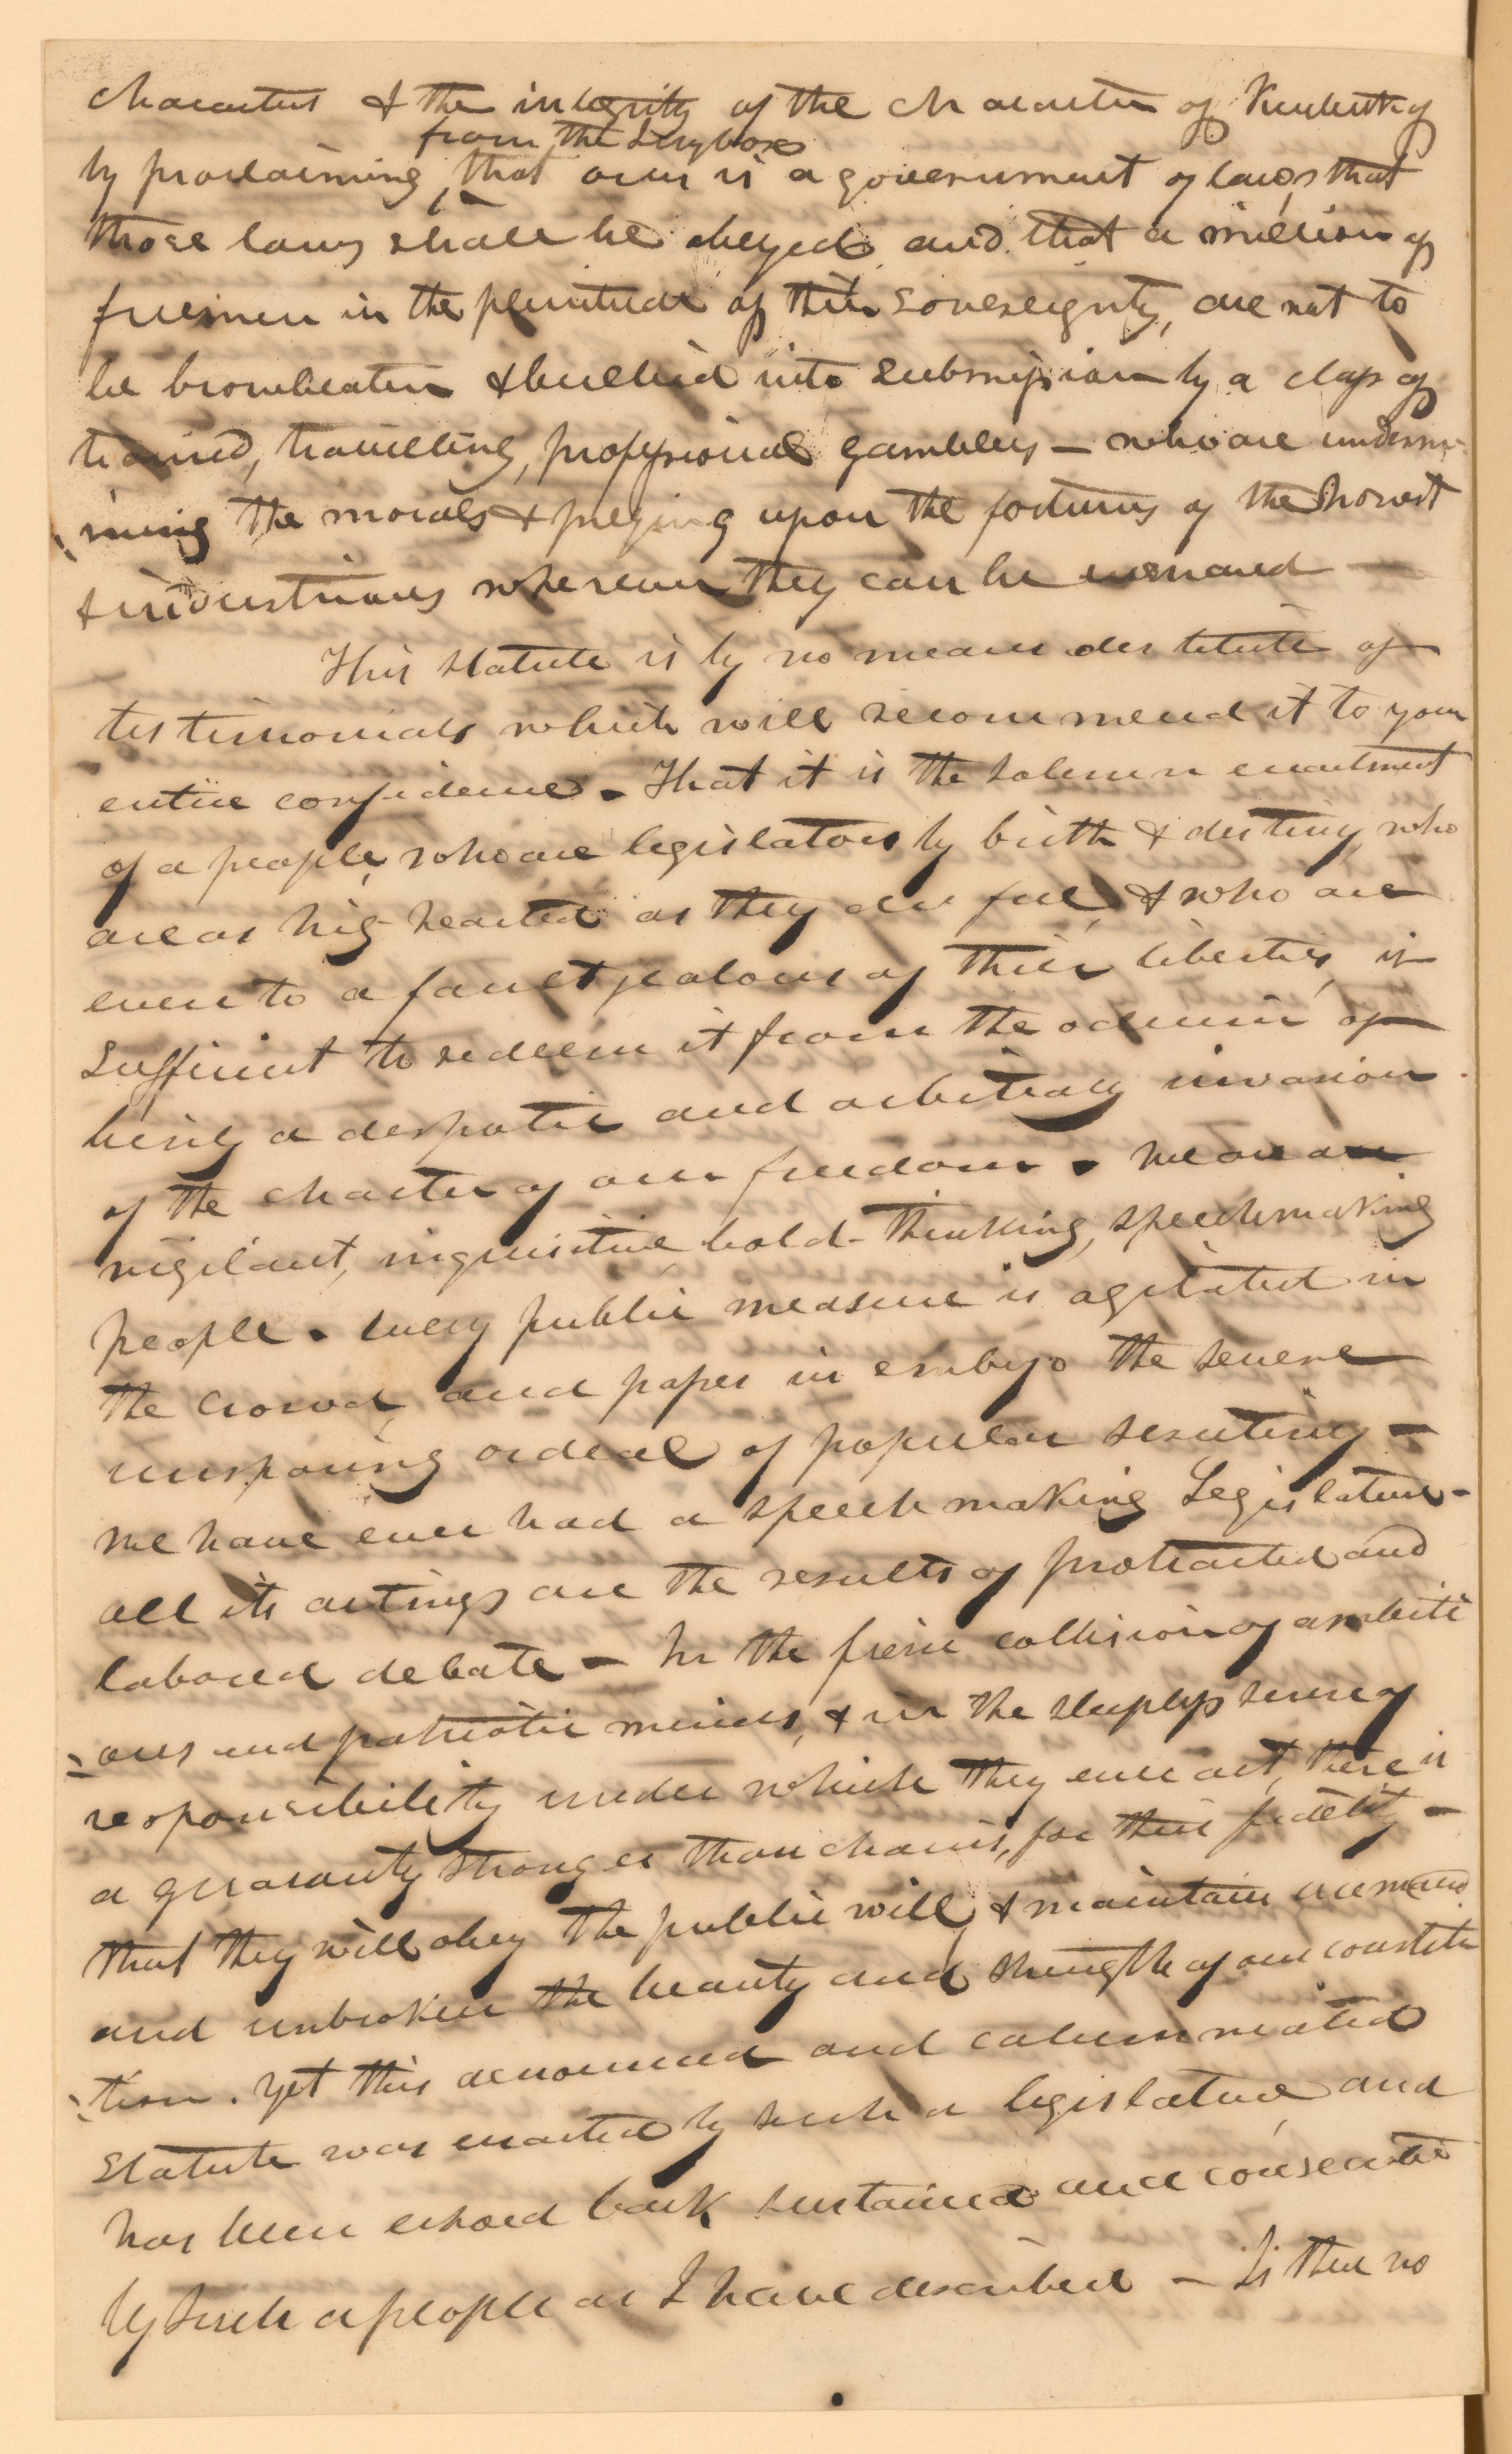 characters & the integrity of the character of Kentucky
from the Jury box
by proclaiming, that ours is a government of laws, that
those laws shall be obeyed and that a million of
freemen in the plenitude of their sovereignty, are not to
be browbeaten & bullied into submission by a class of
trained, travelling, professional gamblers — who are undermi-
-ning the morals & preying upon the fortunes of the honest
& industrious wherever they can be ensnared —
This statute is by no means destitute of
testimonials which will recommend it to your
entire confidence. That it is the solemn enactment
of a people, who are legislators by birth & destiny, who
are as high hearted as they are free, & who are
even to a fault jealous of their liberties, is
sufficient to redeem it from the odium of
being a despotic and arbitrary invasion
of the charter of our freedom. We are a
vigilant, inquisitive bold-thinking, speechmaking
people. Every public measure is agitated in
the crowd, and passes in embryo the severe
unsparing ordeal of popular scrutiny —
We have ever had a speech making Legislature —
all its actings are the results of protracted and
labored debate — In the fierce collision of ambiti
-ous and patriotic minds, & in the sleepless sense of
responsibility under which they ever act, there is
a guaranty stronger than chains, for their fidelity —
that they will obey the public will, & maintain unmarred
and unbroken the beauty and strength of our constitu
-tion. Yet this denounced and calumniated
statute was enacted by such a legislature and
has been echoed back sustained and consecrated
by such a people as I have described — Is there no